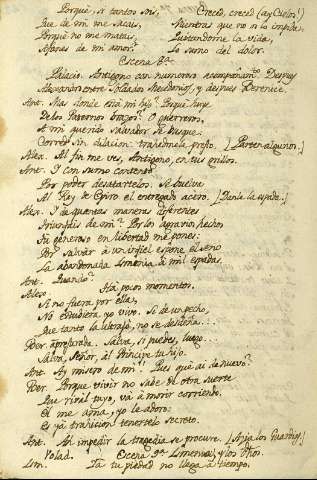 Porqué, si tantos sois, Creced, creced (ay Cielos!)
Que de mi me sacais, Mientras que no os lo impide
Porqué no me matais, Quitandome la vida,
Afanes de mi amor? Lo sumo del dolor.
Escena 8ª
Palacio. Antigono con numeroso acompañamto. Despues
Alexandro entre Soldados Macedonios, y despues Berenice.
Ant. Mas donde está mi hijo? Porqué huye
De los Paternos brazos? O guerreros,
A mi querido salvador se busque.
Corred sin dilacion: trahedmelo presto. (Parten algunos.)
Alex. Al fin me ves, Antigono, en tus grillos.
Ant. I con sumo contento
Por poder desatartelos. Se buelva
Al Rey de Epiro el entregado acero. (Danle la espada.)
Alex. I de quantas maneras diferentes
Triunfais de mi? Por los agravios hechos
Tu generoso en libertad me pones:
Por salvar à un infiel espone el seno
La abandonada Ismenia à mil espadas.
Ant. Quando?
Alex. Ha pocos momentos.
Si no fuera por ella,
No estuviera yo vivo. Si de un pecho,
Que tanto la ultrajó, no se desdeña...
Ber. apresurada. Salva, si puedes, luego...
Salva, Señor, al Principe tu hijo.
Ant. Ay misero de mi! Pues qué ai de nuevo?
Ber. Porque vivir no sabe de otra suerte
Que rival tuyo, vá à morir corriendo.
El me ama, yo le adoro:
Es yá traicion tenertelo secreto.
Ant. Al impedir la tragedia se procure. (A los Guardias)
Volad. Escena 9ª Ismenia, y los dhos.
Ism. Ia tu piedad no llega à tiempo,